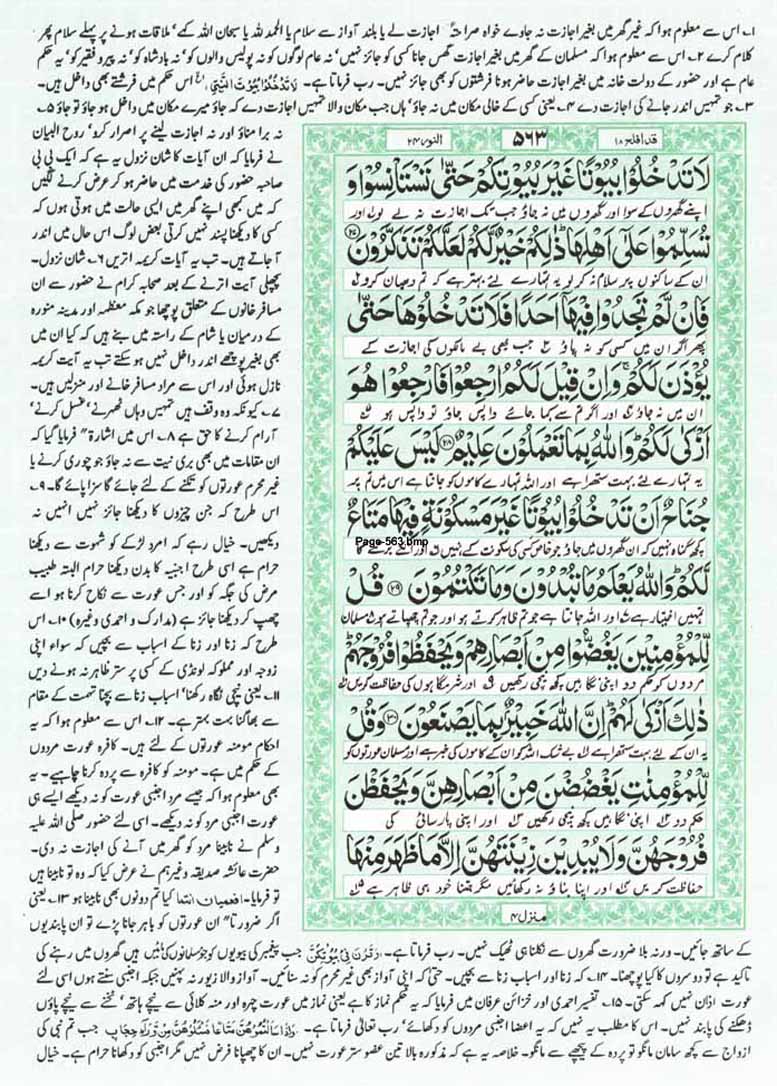 ۱۔ اس سے معلوم ہوا کہ غیر گھر میں بغیر اجازت نہ جاوے خواہ صراحتہً اجازت لے یا بلند آواز سے سلام یا الحمد للہ یا سبحان اللہ کہے، ملاقات ہونے پر پہلے سلام پھر
کلام کرے ۲۔ اس سے معلوم ہوا کہ مسلمان کے گھر میں بغیر اجازت گھس جانا کسی کو جائز نہیں، نہ عام لوگوں کو نہ پولیس والوں کو، نہ بادشاہ کو، نہ پیر و فقیر کو، یہ حکم
عام ہے اور حضور کے دولت خانہ میں بغیر اجازت حاضر ہونا فرشتوں کو بھی جائز نہیں۔ رب فرماتا ہے۔ لَا تَدْخُلُوْا بُیُوْتَ النَّبِیِّ، اس حکم میں فرشتے بھی داخل ہیں۔
۳۔ جو تمہیں اندر جانے کی اجازت دے ۴۔ یعنی کسی کے خالی مکان میں نہ جاؤ، ہاں جب مکان والا تمہیں اجازت دے کہ جاؤ میرے مکان میں داخل ہو جاؤ تو جاؤ ۵۔
قد افلح ۱۸
۵۶۳
النور ۲۴
لَا تَدْخُلُوْا بُیُوْتًا غَیْرَ بُیُوْتِکُمْ حَتّٰی تَسْتَاْنِسُوْا وَ
اپنے گھروں کے سوا اور گھروں میں نہ جاؤ جب تک اجازت نہ لے لو اور
تُسَلِّمُوْا عَلٰۤی اَهْلِهَا ذٰلِکُمْ خَیْرٌ لَّکُمْ لَعَلَّکُمْ تَذَکَّرُوْنَ
ان کے ساکنوں پر سلام نہ کرلو یہ تمہارے لئے بہتر ہے کہ تم دھیان کرو
فَاِنْ لَّمْ تَجِدُوْا فِیْهَاۤ اَحَدًا فَلَا تَدْخُلُوْهَا حَتّٰی
پھر اگر ان میں کسی کو نہ پاؤ جب بھی بے مالکوں کی اجازت کے
یُؤْذَنَ لَکُمْ وَ اِنْ قِیْلَ لَکُمُ ارْجِعُوْا فَارْجِعُوْا هُوَ
ان میں نہ جاؤ اور اگر تم سے کہا جائے واپس جاؤ تو واپس ہو
اَزْکٰی لَکُمْ وَ اللّٰهُ بِمَا تَعْمَلُوْنَ عَلِیْمٌ ۲۸ لَیْسَ عَلَیْکُمْ
یہ تمہارے لئے بہت ستھرا ہے اور اللہ تمہارے کاموں کو جانتا ہے اس میں تم پر
جُنَاحٌ اَنْ تَدْخُلُوْا بُیُوْتًا غَیْرَ مَسْکُوْنَةٍ فِیْهَا مَتَاعٌ
Page-563.bmp
کچھ گناہ نہیں کہ ان گھروں میں جاؤ جو خاص کسی کی سکونت کے نہیں اور انکے برتنے کا
لَّکُمْ وَ اللّٰهُ یَعْلَمُ مَا تُبْدُوْنَ وَ مَا تَکْتُمُوْنَ ۲۹ قُلْ
تمہیں اختیار ہے اور اللہ جانتا ہے جو تم ظاہر کرتے ہو اور جو تم چھپاتے ہو مسلمان
لِّلْمُؤْمِنِیْنَ یَغُضُّوْا مِنْ اَبْصَارِهِمْ وَ یَحْفَظُوْا فُرُوْجَهُمْ
مردوں کو حکم دو اپنی نگاہیں کچھ نیچی رکھیں اور شرمگاہوں کی حفاظت کریں
ذٰلِکَ اَزْکٰی لَهُمْ اِنَّ اللّٰهَ خَبِیْرٌۢ بِمَا یَصْنَعُوْنَ ۳۰ وَ قُلْ
یہ ان کے لئے بہت ستھرا ہے بے شک اللہ کو ان کے کاموں کی خبر ہے اور مسلمان عورتوں کو
لِّلْمُؤْمِنٰتِ یَغْضُضْنَ مِنْ اَبْصَارِهِنَّ وَ یَحْفَظْنَ
حکم دو اپنی نگاہیں کچھ نیچی رکھیں اور اپنی پارسائی کی
فُرُوْجَهُنَّ وَ لَا یُبْدِیْنَ زِیْنَتَهُنَّ اِلَّا مَا ظَهَرَ مِنْهَا
حفاظت کریں اور اپنا بناؤ نہ دکھائیں مگر جتنا خود ہی ظاہر ہے
منزل ۴
نہ برا مناؤ اور نہ اجازت لینے پر اصرار کرو، روح البیان
نے فرمایا کہ ان آیات کا شان نزول یہ ہے کہ ایک بی بی
صاحبہ حضور کی خدمت میں حاضر ہو کر عرض کرنے لگیں
کہ میں کبھی اپنے گھر میں ایسی حالت میں ہوتی ہوں کہ
کسی کا دیکھنا پسند نہیں کرتی بعض لوگ اس حال میں اندر
آ جاتے ہیں۔ تب یہ آیات کریمہ اتریں ۶۔ شان نزول۔
پچھلی آیت اترنے کے بعد صحابہ کرام نے حضور سے ان
مسافر خانوں کے متعلق پوچھا جو مکہ معظمہ اور مدینہ منورہ
کے درمیان یا شام کے راستہ میں بنے ہیں کہ کیا ان میں
بھی بغیر پوچھے اندر داخل نہیں ہو سکتے تب یہ آیت کریمہ
نازل ہوئی اور اس سے مراد مسافر خانے اور منزلیں ہیں۔
۷۔ کیونکہ وہ وقف ہیں تمہیں وہاں ٹھہرنے، غسل کرنے،
آرام کرنے کا حق ہے ۸۔ اس میں اشارۃً فرمایا گیا کہ
ان مقامات میں بھی بری نیت سے نہ جاؤ جو چوری کرنے یا
غیر محرم عورتوں کو تکنے کے لئے جائے گا سزا پائے گا۔ ۹۔
اس طرح کہ جن چیزوں کا دیکھنا جائز نہیں انہیں نہ
دیکھیں۔ خیال رہے کہ امرد لڑکے کو شہوت سے دیکھنا
حرام ہے اسی طرح اجنبیہ کا بدن دیکھنا حرام البتہ طبیب
مرض کی جگہ کو اور جس عورت سے نکاح کرنا ہو اسے
چھپ کر دیکھنا جائز ہے (مدارک و احمدی وغیرہ) ۱۰۔ اس
طرح کہ زنا اور زنا کے اسباب سے بچیں کہ سوا اپنی
زوجہ اور مملوکہ لونڈی کے کسی پر ستر ظاہر نہ ہونے دیں
۱۱۔ یعنی نیچی نگاہ رکھنا، اسباب زنا سے بچنا تہمت کے مقام
سے بھاگنا بہت بہتر ہے۔ ۱۲۔ اس سے معلوم ہوا کہ یہ
احکام مومنہ عورتوں کے لئے ہیں۔ کافرہ عورت مردوں
کے حکم میں ہے۔ مومنہ کو کافرہ سے پردہ کرنا چاہیے۔ یہ
بھی معلوم ہوا کہ جیسے مرد اجنبی عورت کو نہ دیکھے ایسے ہی
عورت اجنبی مرد کو نہ دیکھے۔ اسی لئے حضور صلی اللہ علیہ
وسلم نے نابینا مرد کو گھر میں آنے کی اجازت نہ دی۔
حضرت عائشہ صدیقہ وغیرہم نے عرض کیا کہ وہ تو نابینا ہے
تو فرمایا۔ افعمیان انتما کیا تم دونوں بھی نابینا ہو ۱۳۔ یعنی
اگر ضرورتاً ان عورتوں کو باہر جانا پڑے تو ان پابندیوں
کے ساتھ جائیں۔ ورنہ بلا ضرورت گھروں سے نکلنا ہی ٹھیک نہیں۔ رب فرماتا ہے۔ وَقَرْنَ فِیْ بُیُوْتِکُنَّ جب پیغمبر کی بیویوں کو جو مسلمانوں کی مائیں ہیں گھروں میں رہنے کی
تاکید ہے تو دوسروں کا کیا پوچھنا۔ ۱۴۔ کہ زنا اور اسباب زنا سے بچیں۔ حتیٰ کہ اپنی آواز بھی غیر محرم کو نہ سنائیں۔ آواز والا زیور نہ پہنیں جبکہ اجنبی سنتے ہوں اسی لئے
عورت اذان نہیں کہہ سکتی۔ ۱۵۔ تفسیر احمدی اور خزائن عرفان میں فرمایا کہ یہ حکم نماز کا ہے یعنی نماز میں عورت چہرہ اور منہ کلائی سے نیچے ہاتھ، ٹخنے سے نیچے پاؤں
ڈھکنے کی پابند نہیں۔ اس کا مطلب یہ نہیں کہ یہ اعضا اجنبی مردوں کو دکھائے، رب تعالیٰ فرماتا ہے۔ وَاِذَا سَاَلْتُمُوْهُنَّ مَتَاعًا فَسْئَلُوْهُنَّ مِنْ وَّرَآءِ حِجَابٍ جب تم نبی کی
ازواج سے کچھ سامان مانگو تو پردہ کے پیچھے سے مانگو۔ خلاصہ یہ ہے کہ مذکورہ بالا تین عضو ستر عورت نہیں۔ ان کا چھپانا فرض نہیں مگر اجنبی کو دکھانا حرام ہے۔ خیال